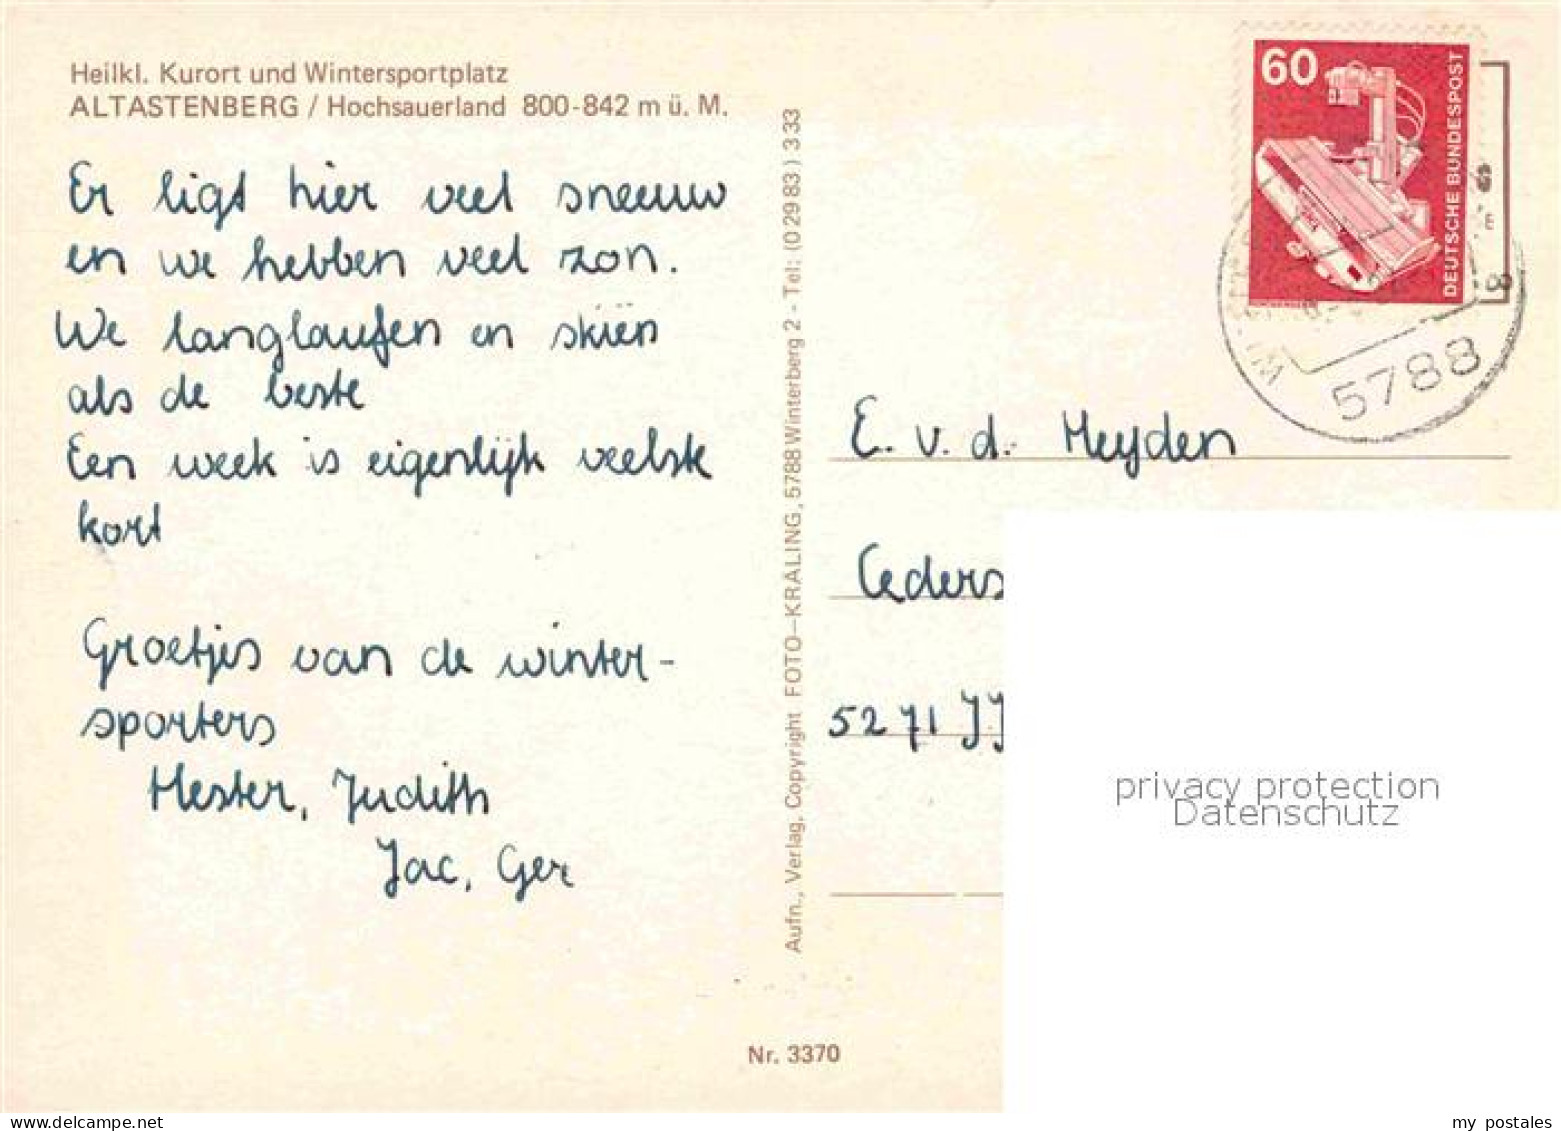 Heilkl. Kurort und Wintersportplatz
ALTASTENBERG / Hochsauerland 800-842 m ü. M.
Er ligt hier veel sneeuw
en we hebben veel zon.
We langlaufen en skiën
als de beste
Een week is eigenlijk veelste
kort
Groetjes van de winter-
sporters
Hester, Judith
Jac, Ger
Aufn., Verlag, Copyright FOTO-KRALING, 5788 Winterberg 2 - Tel: (0 29 83) 3 33
Nr. 3370
60
DEUTSCHE BUNDESPOST
5788
E. v. d. Heyden
Ceders
5271 JJ
privacy protection
Datenschutz
my postales